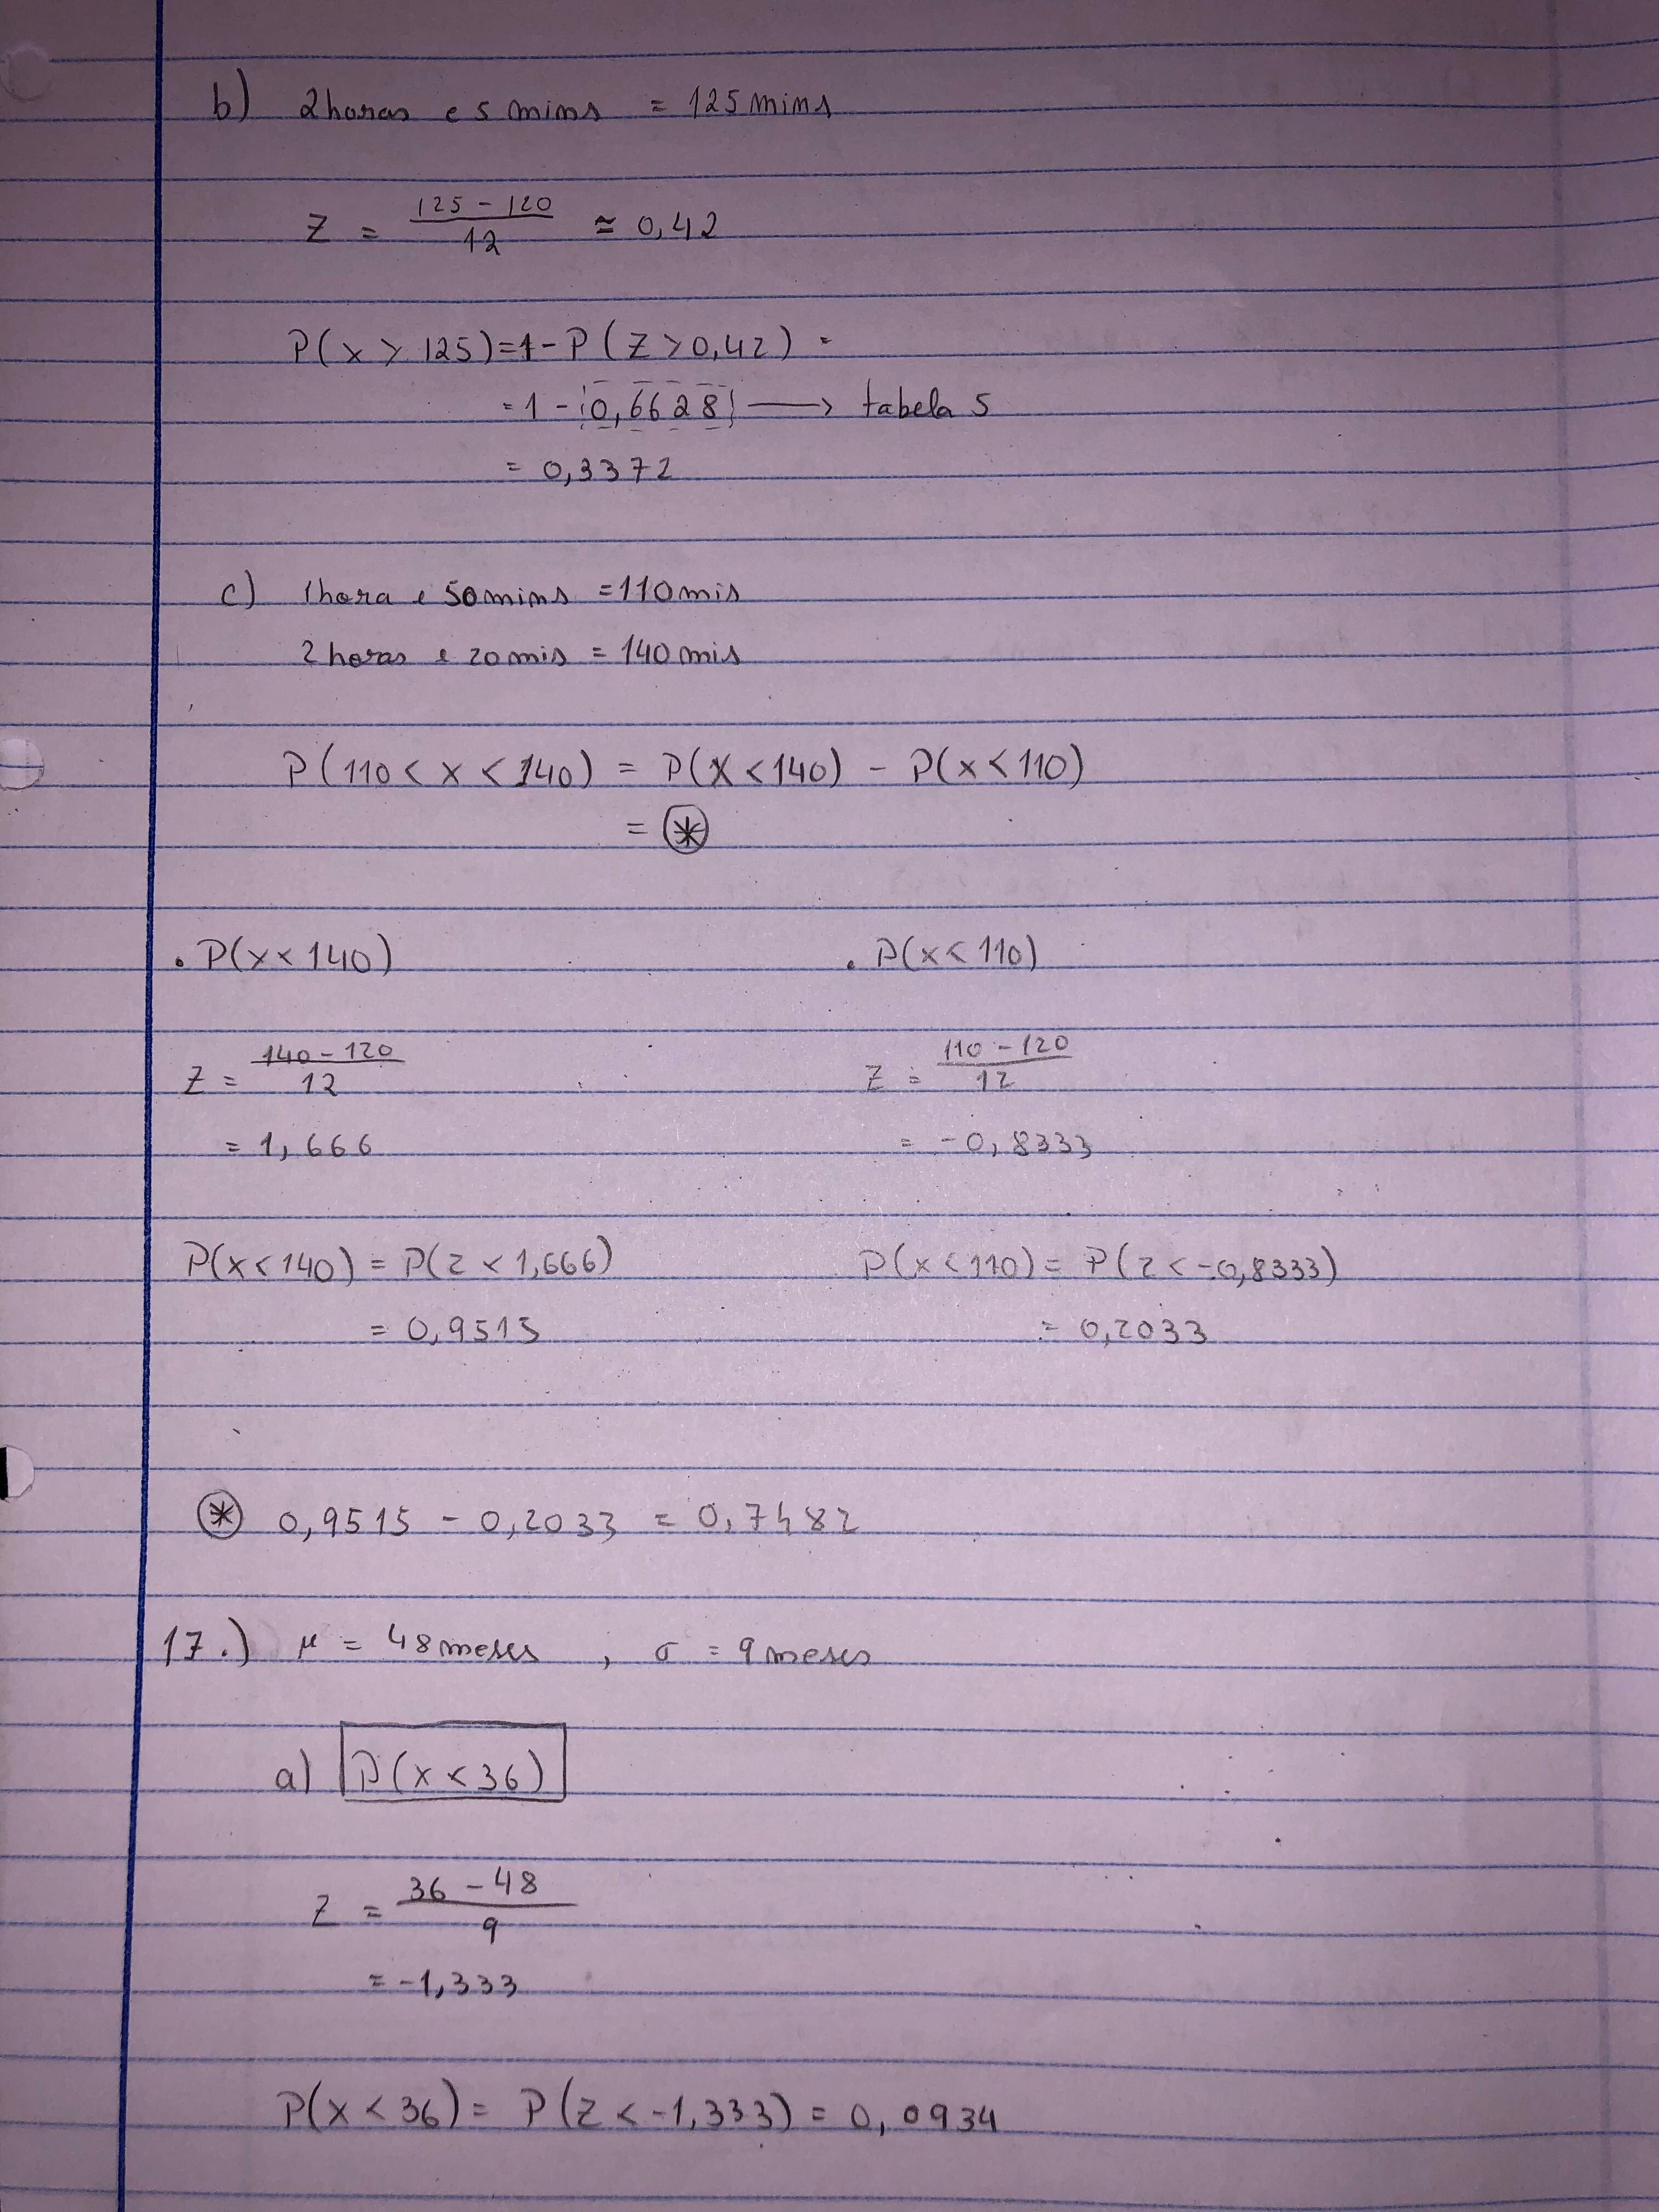 b) 2horas e 5 mins = 125mins
Z = 125 - 120 / 12 ≅ 0,42
P(x > 125) = 1 - P(Z > 0,42) =
= 1 - 0,6628 → tabela 5
= 0,3372
c) 1hora e 50mins = 110mis
2horas e 20mis = 140mis
P(110 < x < 140) = P(X < 140) - P(x < 110)
= ⊛
. P(x < 140)
Z = 140 - 120 / 12
= 1,666
P(x < 140) = P(z < 1,666)
= 0,9515
. P(x < 110)
Z = 110 - 120 / 12
= -0,8333
P(x < 110) = P(z < -0,8333)
= 0,2033
⊛ 0,9515 - 0,2033 = 0,7482
17.) μ = 48meses , σ = 9meses
a) P(x < 36)
Z = 36 - 48 / 9
= -1,333
P(x < 36) = P(z < -1,333) = 0,0934